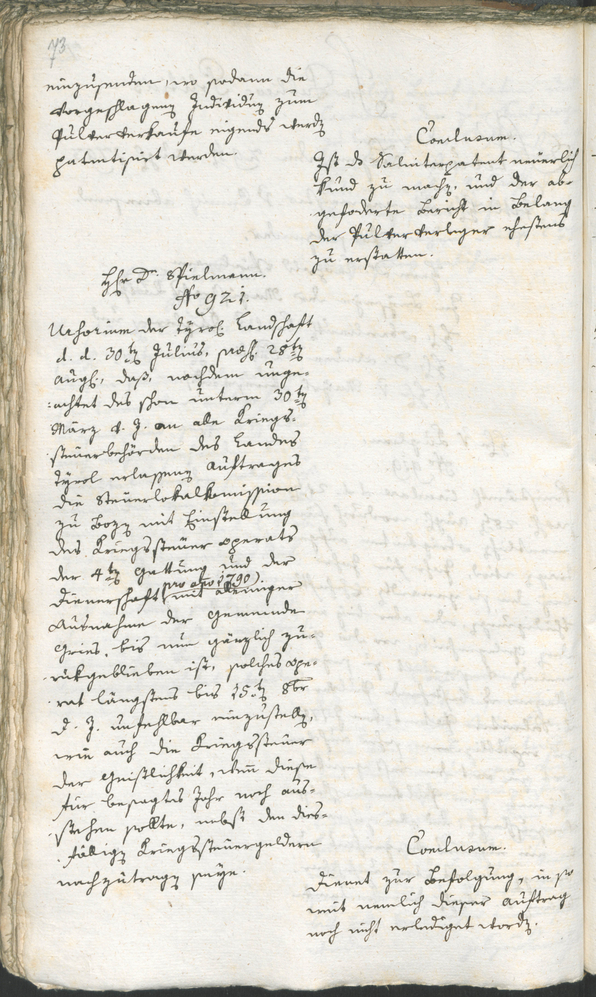 73
einzusenden, wo sodann die
vorgeschlagenen Individuen zum
Pulververkaufe eigends werden
patentisirt werden.
Conclusum.
Ist das Saliterpatent neuerlich
kund zu machen, und der ab-
geforderte Bericht in Belang
der Pulververleger ehestens
zu erstatten.
Hhr Dr. Spielmann.
No 921.
der Tyrol. Landschaft
d. d. 30ten Julius, praes. 28ten
Aug., daß, nachdem unge-
achtet des schon unterm 30ten
März d. J. an alle Kriegs-
steuerbehörden des Landes
Tyrol erlassenen Auftrages
die Steuerlokalkommission
zu Bozen mit Einstellung
des Kriegssteueroperats
der 4ten Gattung und der
Dienerschaft (pro ano 1790)
mit alleiniger
Ausnahme der Gemeinde
Gries, bis nun gänzlich zu-
rückgeblieben ist, solches Ope-
rat längstens bis 15ten 8br
d. J. unfehlbar einzustellen,
wie auch die Kriegssteuer
der Geistlichkeit, wenn diese
für besagtes Jahr noch aus-
stehen sollte, nebst den dies-
fälligen Kriegssteuergeldern
nachzutragen seye.
Conclusum.
Dienet zur Befolgung, in so
weit nemlich dieser Auftrag
noch nicht erlediget worden.